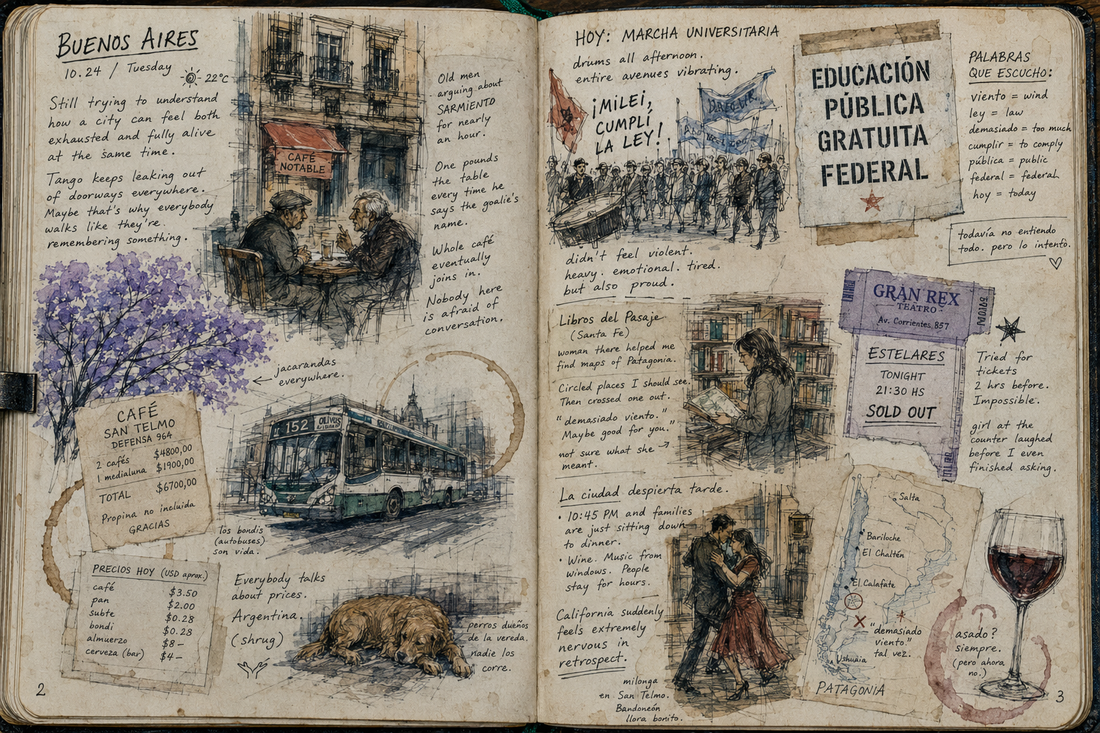 BUENOS AIRES
10.24 / Tuesday
22°C
Still trying to understand
how a city can feel both
exhausted and fully alive
at the same time.
Tango keeps leaking out
of doorways everywhere.
Maybe that's why everybody
walks like they're
remembering something.
CAFÉ
NOTABLE
Old men
arguing about
SARMIENTO
for nearly
an hour.
One pounds
the table
every time he
says the goalie's
name.
Whole café
eventually
joins in.
Nobody here
is afraid of
conversation.
jacarandas
everywhere.
CAFÉ
SAN TELMO
DEFENSA 964
2 cafés $4800,00
1 medialuna $1900,00
TOTAL $6700,00
Propina no incluida
GRACIAS
152 OLIVOS
los bondis
(autobuses)
son vida.
PRECIOS HOY (USD aprox.)
café $3.50
pan $2.00
subte $0.28
bondi $0.28
almuerzo $8–
cerveza (bar) $4–
Everybody talks
about prices.
Argentina.
(shrug)
perros dueños
de la vereda.
nadie los
corre.
2
HOY: MARCHA UNIVERSITARIA
drums all afternoon.
entire avenues vibrating.
¡MILEI,
CUMPLÍ
LA LEY!
didn't feel violent.
heavy. emotional. tired.
but also proud.
EDUCACIÓN
PÚBLICA
GRATUITA
FEDERAL
PALABRAS
QUE ESCUCHO:
viento = wind
ley = law
demasiado = too much
cumplir = to comply
pública = public
federal = federal
hoy = today
todavía no entiendo
todo. pero lo intento.
Libros del Pasaje
(Santa Fe)
woman there helped me
find maps of Patagonia.
Circled places I should see.
Then crossed one out.
"demasiado viento."
Maybe good for you."
not sure what she
meant.
GRAN REX
TEATRO
Av. Corrientes 857
ESTELARES
TONIGHT
21:30 HS
SOLD OUT
Tried for
tickets
2 hrs before.
Impossible.
girl at the
counter laughed
before I even
finished asking.
La ciudad despierta tarde.
• 10:45 PM and families
are just sitting down
to dinner.
• Wine. Music from
windows. People
stay for hours.
California suddenly
feels extremely
nervous in
retrospect.
milonga
en San Telmo.
Bandoneón
llora bonito.
Salta
Bariloche
El Chaltén
El Calafate
"demasiado
viento"
tal vez.
Ushuaia
PATAGONIA
asado?
siempre.
(pero ahora
no.)
3